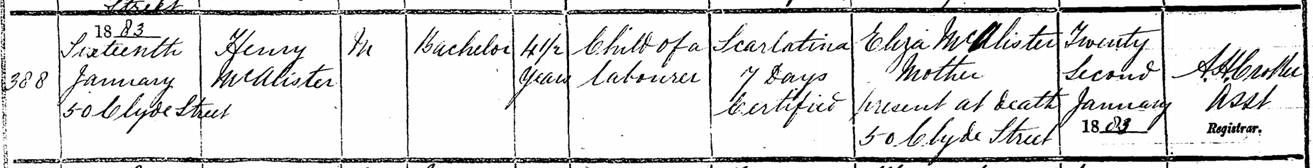 Street
388
1883
Sixteenth
January
50 Clyde Street
Henry
McAlister
M
Bachelor
4 1/2
Years
Child of a
labourer
Scarlatina
7 Days
Certified
Eliza McAlister
Mother
present at death
50 Clyde Street
Twenty
Second
January
1883
Asst
Registrar.